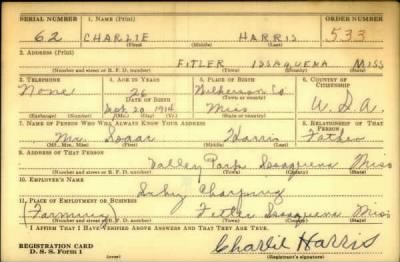 SERIAL NUMBER 1. NAME (Print) ORDER NUMBER
62 CHARLIE HARRIS 533
(First) (Middle) (Last)
2. ADDRESS (Print)
FITLER ISSAQUENA MISS
(Number and street or R. F. D. number) (Town) (County) (State)
3. TELEPHONE 4. AGE IN YEARS 5. PLACE OF BIRTH 6. COUNTRY OF CITIZENSHIP
None 26 Wilkerson Co
DATE OF BIRTH (Town or county)
20 1914 Miss U.S.A.
(Exchange) (Number) (Mo.) (Day) (Yr.) (State or country)
7. NAME OF PERSON WHO WILL ALWAYS KNOW YOUR ADDRESS 8. RELATIONSHIP OF THAT PERSON
Mr. Harris Father
(Mr., Mrs., Miss) (First) (Middle) (Last)
9. ADDRESS OF THAT PERSON
Valley Park Issaquena Miss
(Number and street or R. F. D. number) (Town) (County) (State)
10. EMPLOYER'S NAME
11. PLACE OF EMPLOYMENT OR BUSINESS
(Farming) Fitler Issaquena Miss
(Number and street or R. F. D. number) (Town) (County) (State)
I AFFIRM THAT I HAVE VERIFIED ABOVE ANSWERS AND THAT THEY ARE TRUE.
REGISTRATION CARD
D. S. S. Form 1 Charlie Harris
(over) (Registrant's signature)